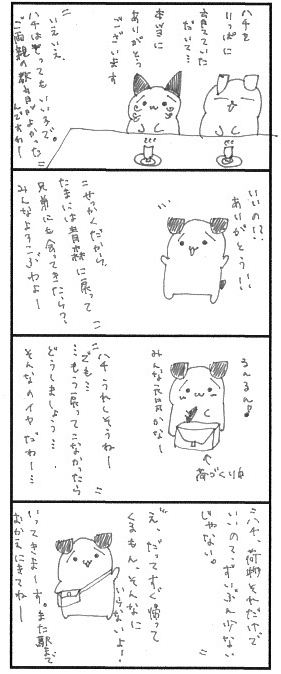 ハチを
いっぱに
育てていた
だいて…
本当に
ありがとう
ございます
いえいえ、
ハチはとってもいい子で。
ご両親の教育がよかった
んですわー
いいの!?
ありがとうー!
せっかくだから、
たまには青森に戻って
兄弟にも会ってきたら?
みんなよろこぶわよー
るんるん♪
みんな元気かなー
荷づくり中
ハチうれしそうねー
でも…
…もう戻ってこなかったら
どうしましょう…
そんなのイヤだわー…
ハチ、荷物それだけで
いいの?ずいぶん少ない
じゃない。
え、だってすぐ帰って
くるもん、そんなに
いらないよー!
いってきまーす。また駅まで
むかえにきてねー